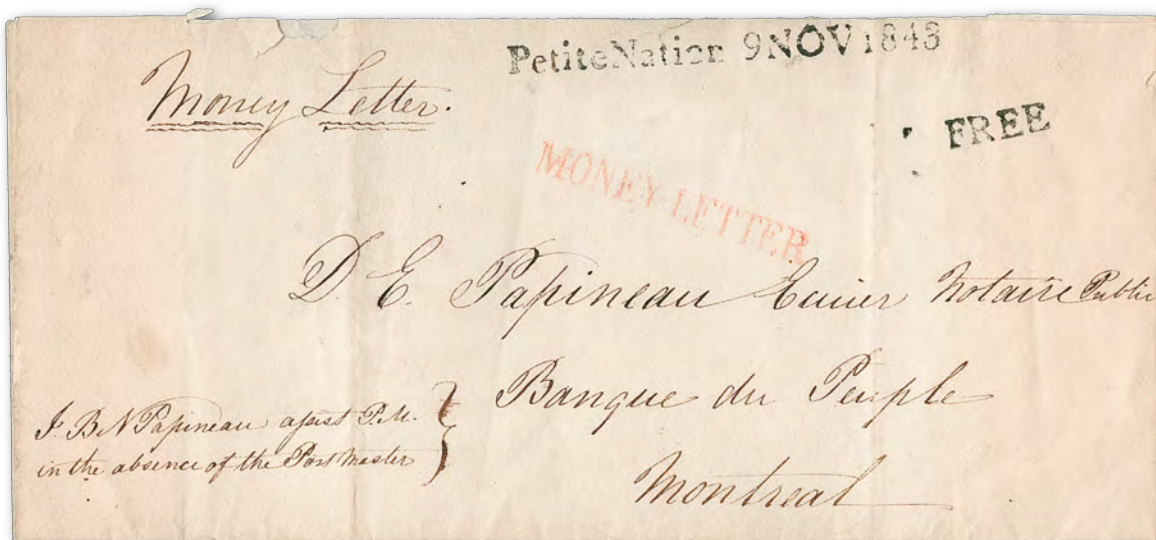 Petite Nation 9 NOV 1843
Money Letter.
FREE
MONEY LETTER
D. E. Papineau Ecuier Notaire Public
Banque du Peuple
Montreal
J. B. N Papineau assist P.M.
in the absence of the Post Master